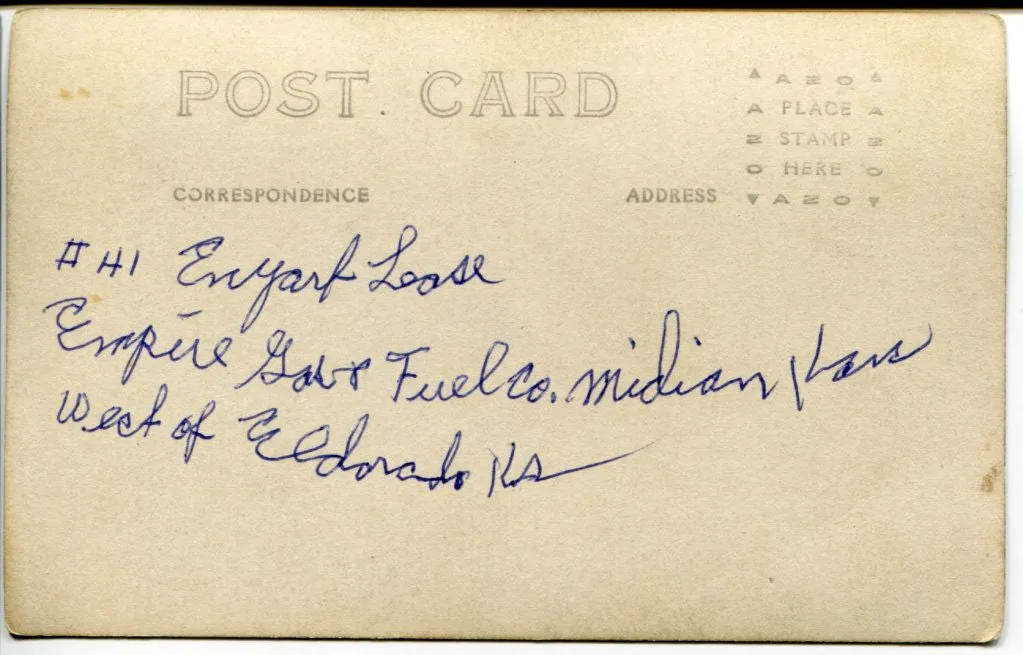 POST CARD
▲ AZO ▲
A PLACE A
Z STAMP Z
O HERE O
▼ AZO ▼
CORRESPONDENCE
ADDRESS
# 41 Enyart Lease
Empire Gas & Fuel Co. Midian Kans
West of Eldorado KS